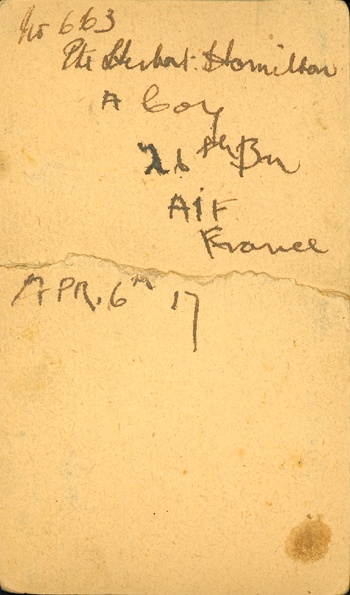 No 663
Pte Herbert Hamilton
A Coy
26th Bn
AIF
France
APR. 6th 17